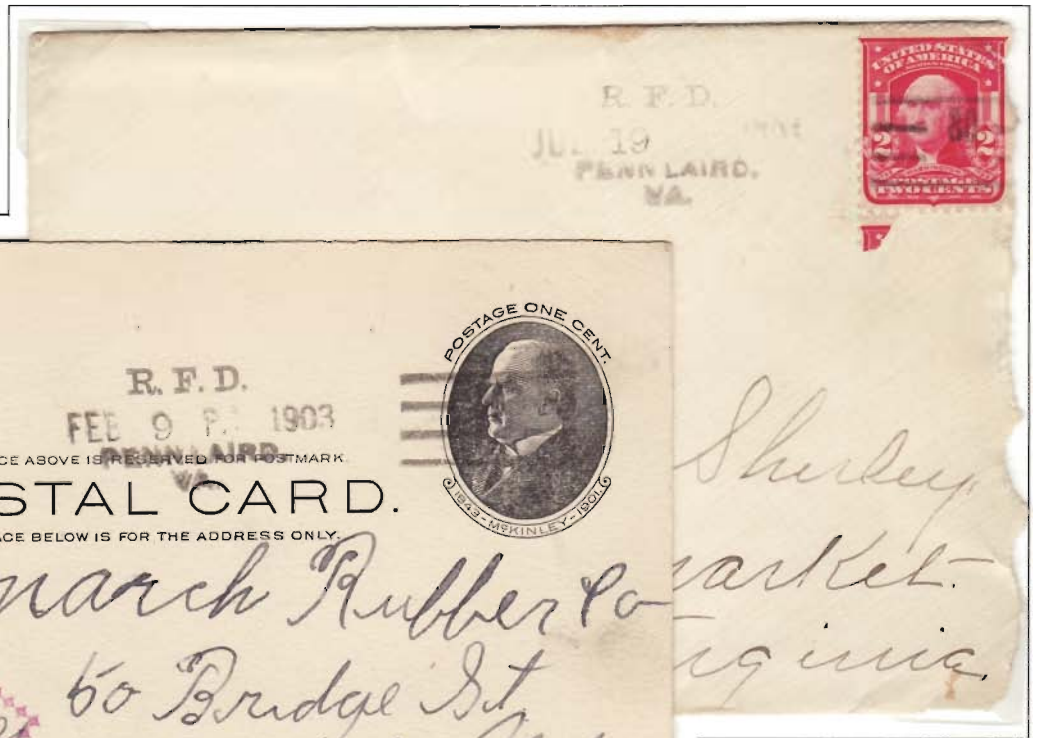 R. F. D.
19
PENN LAIRD,
VA.
UNITED STATES
OF AMERICA
2 2
POSTAGE
TWO CENTS
Shirley
arket.
rginia.
POSTAGE ONE CENT.
1843-McKINLEY-1901.
R. F. D.
FEB 9 P. 1903
PENN LAIRD,
VA.
CE ABOVE IS RESERVED FOR POSTMARK.
STAL CARD.
ACE BELOW IS FOR THE ADDRESS ONLY.
narch Rubber Co
60 Bridge St